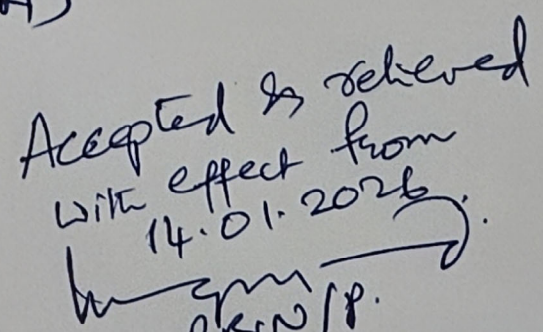 Accepted & relieved
with effect from
14.01.2026.